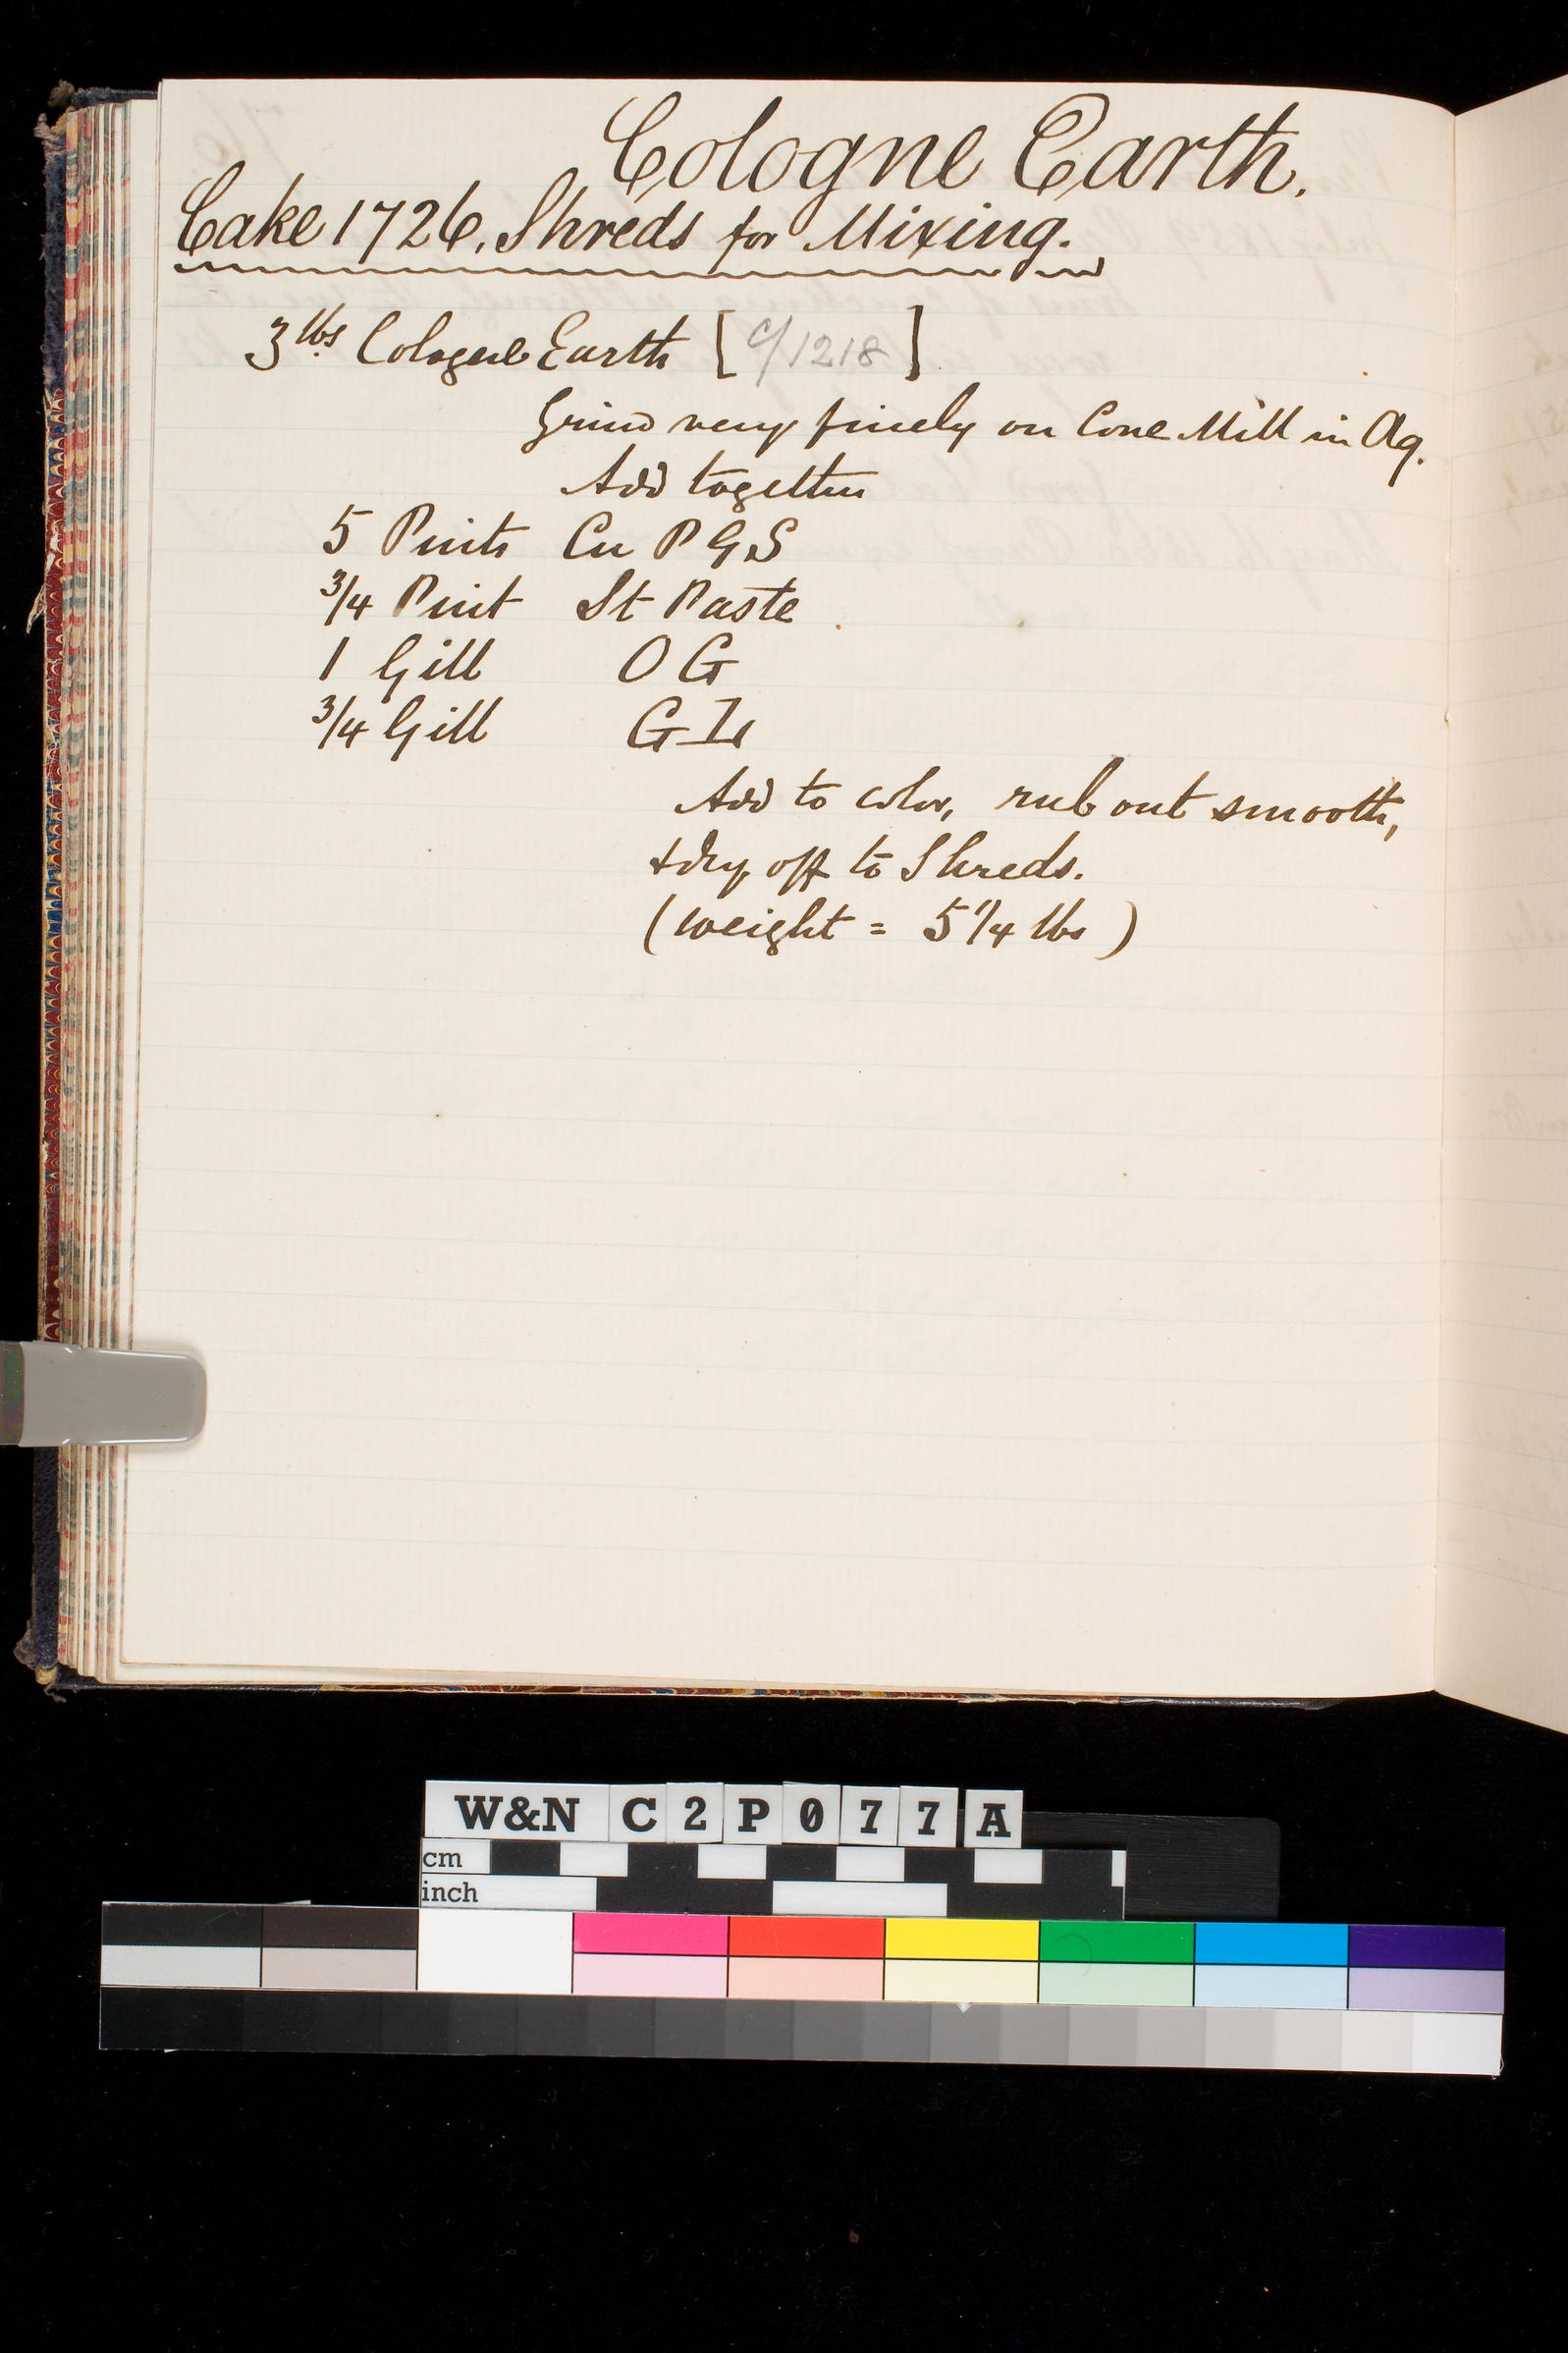 Cologne Earth.
Cake 1726. Shreds for Mixing.
3 lbs. Cologne Earth [ c/1218 ]
Grind very finely on Cone Mill in Aq.
Add together
5 Pints Cu P G S
3/4 Pint St Paste
1 Gill O G
3/4 Gill G L
Add to color, rub out smooth,
+ dry off to Shreds.
(weight = 5 1/4 lbs )
W&N C2P077A
cm
inch